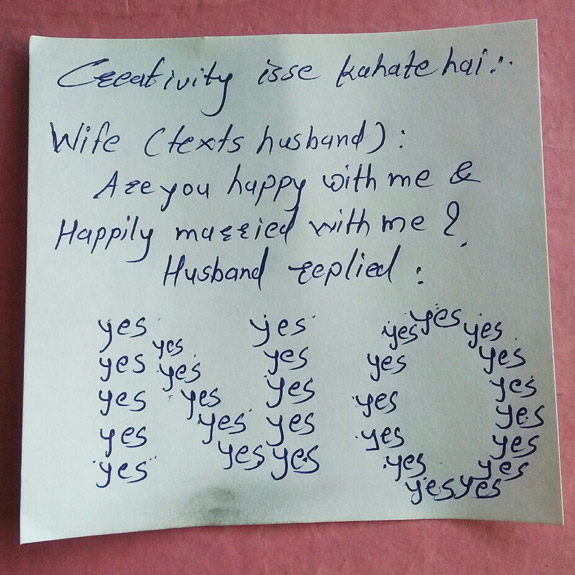 Creativity isse kahate hai :.
Wife (texts husband) :
Are you happy with me &
Happily married with me ?
Husband replied :
yes yes yes yes yes
yes yes yes yes yes
yes yes yes yes yes
yes yes yes yes yes
yes yes yes yes yes
yes yes yes yes
yes yes yes yes
yes yes yes yes yes